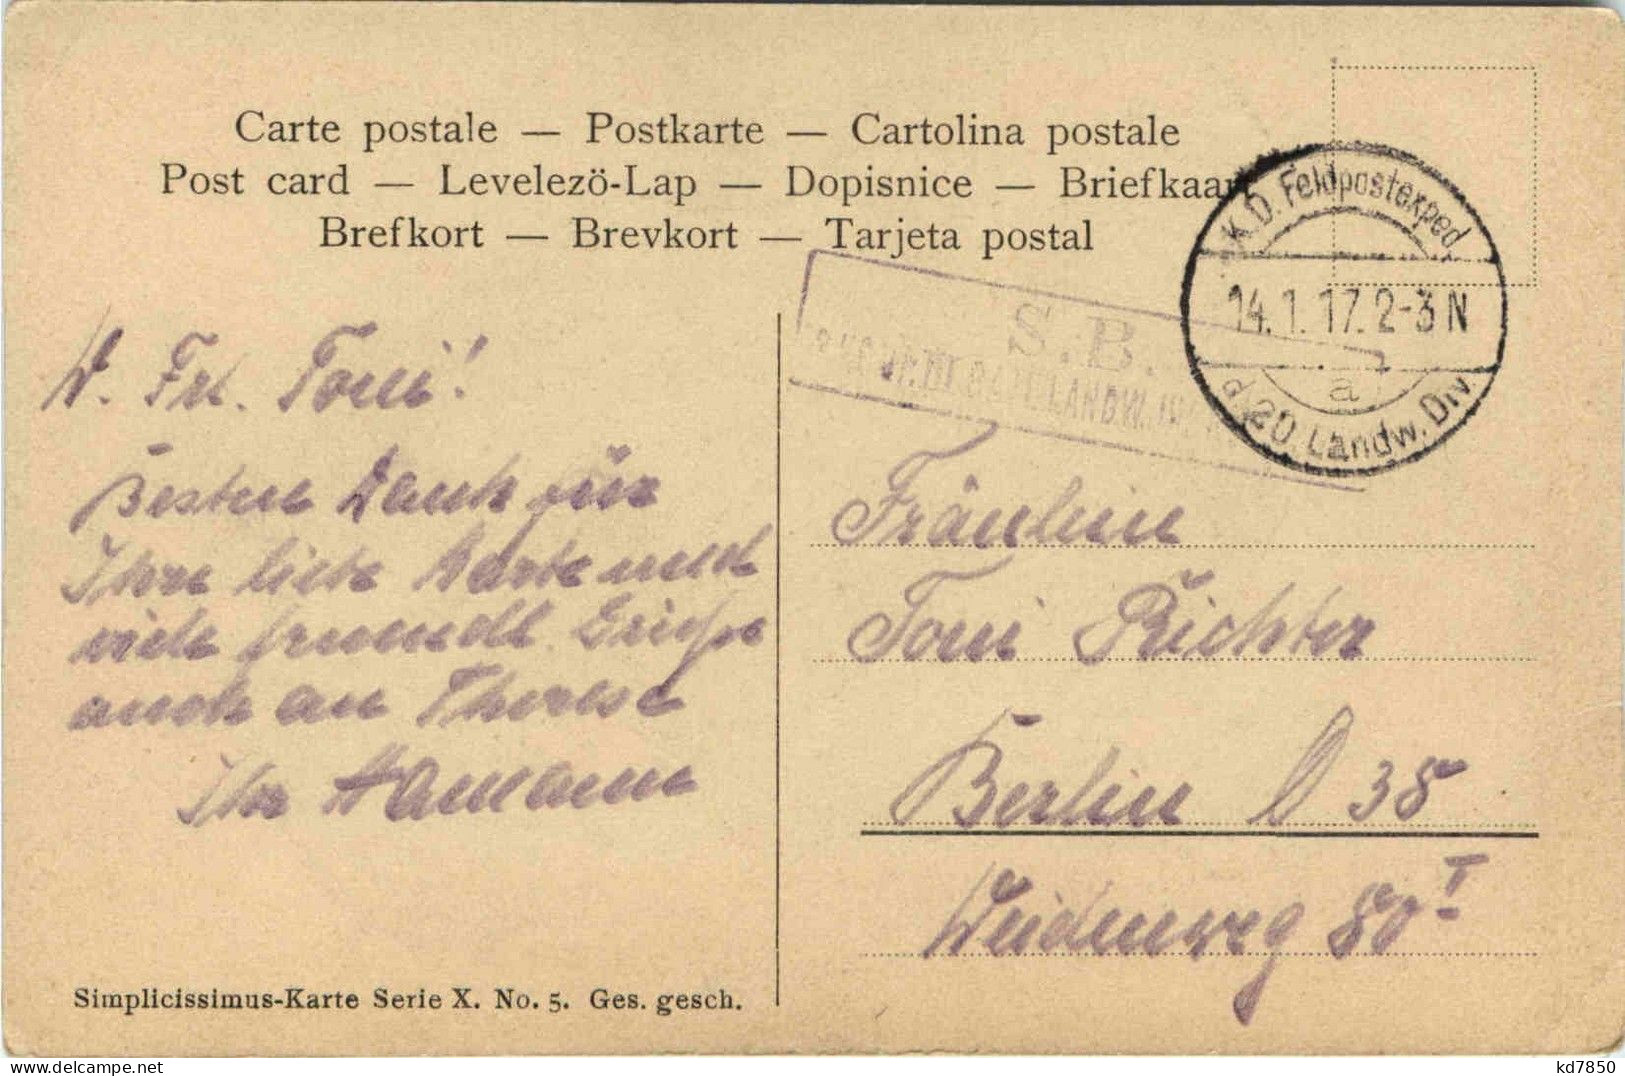 Carte postale — Postkarte — Cartolina postale
Post card — Levelezö-Lap — Dopisnice — Briefkaart
Brefkort — Brevkort — Tarjeta postal
K.D. Feldpostexped
14.1.17. 2-3 N
a
d. 20. Landw. Div.
S. B.
LANDW.
W. Frl. Toni!
Besten Dank für
Ihre liebe Karte und
viele freundl. Grüße
auch an Therese
Ihr Hamann
Fräulein
Toni Richter
Berlin O 38
Weidenweg 80 I
Simplicissimus-Karte Serie X. No. 5. Ges. gesch.
kd7850